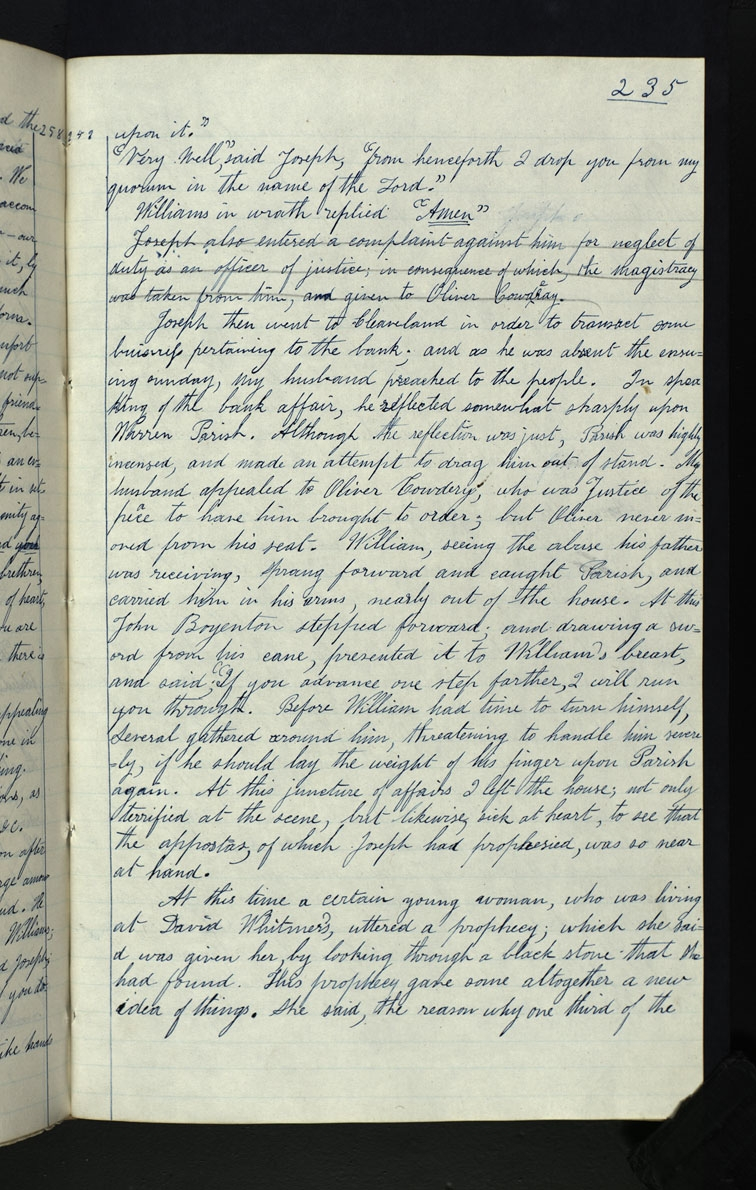 235
upon it."
"Very Well," said Joseph, "from henceforth I drop you from my
quorum in the name of the Lord."
Williams in wrath replied "Amen"
Joseph also entered a complaint against him for neglect of
duty as an officer of justice; in consequence of which, the magistracy
was taken from him, and given to Oliver Cowdray.
Joseph then went to Cleaveland in order to transact some
business pertaining to the bank; and as he was absent the ensu-
ing sunday, my husband preached to the people. In spea
king of the bank affair, he reflected somewhat sharply upon
Warren Parish. Although the reflection was just, Parish was highly
incensed, and made an attempt to drag him out of stand. My
husband appealed to Oliver Cowdery, who was Justice of the
peace to have him brought to order; but Oliver never m-
oved from his seat. William, seeing the abuse his father
was receiving, sprang forward and caught Parish, and
carried him in his arms, nearly out of the house. At this
John Boyenton stepped forward; and drawing a sw-
ord from his cane, presented it to William's breast,
and said; "If you advance one step farther, I will run
you through. Before William had time to turn himself,
several gathered around him, threatening to handle him severe
-ly, if he should lay the weight of his finger upon Parish
again. At this juncture of affairs I left the house; not only
terrified at the scene, but likewise, sick at heart, to see that
the appostasy of which Joseph had prophesied, was so near
at hand.
At this time a certain young woman, who was living
at David Whitmer's, uttered a prophecy; which she sai-
d was given her, by looking through a black stone that she
had found. This prophecy gave some altogether a new
idea of things. She said, the reason why one third of the